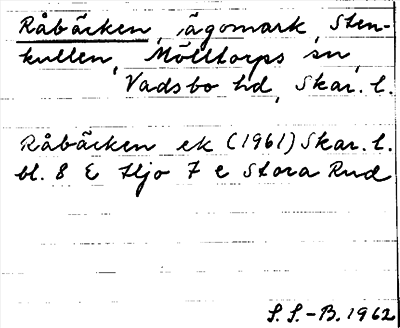 Råbäcken, ägomark, Sten-
kullen, Mölltorps sn,
Vadsbo hd, Skar. l.
Råbäcken ek (1961) Skar. l.
bl. 8 E Hjo 7 e Stora Rud
S. S.-B. 1962